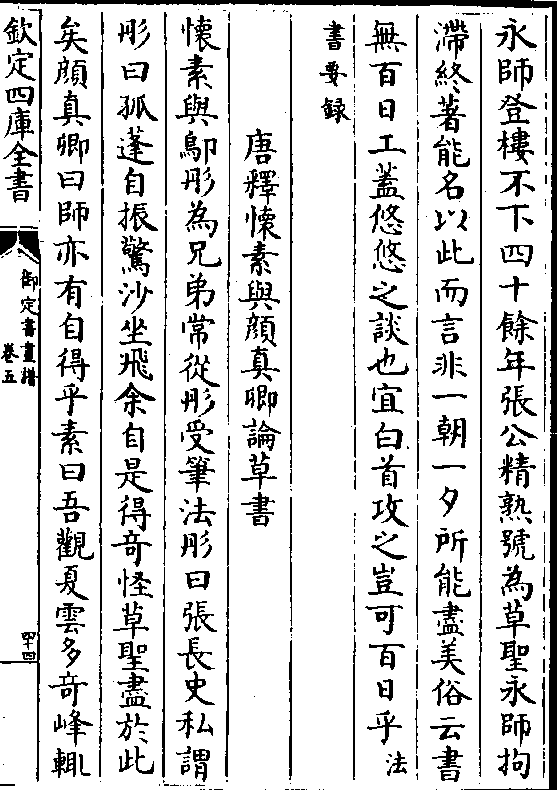 永師登樓不下四十餘年張公精熟號為草聖永師拘
滯終著能名以此而言非一朝一夕所能盡美俗云書
無百日工蓋悠悠之談也宜白首攻之豈可百日乎法
書要録
唐釋懷素與顔真卿論草書
懷素與鄔彤為兄弟常從彤受筆法彤曰張長史私謂
彤曰孤蓬自振驚沙坐飛余自是得奇怪草聖盡於此
矣顔真卿曰師亦有自得乎素曰吾觀夏雲多奇峰輒
欽定四庫全書
御定書畫譜
卷五
四十四